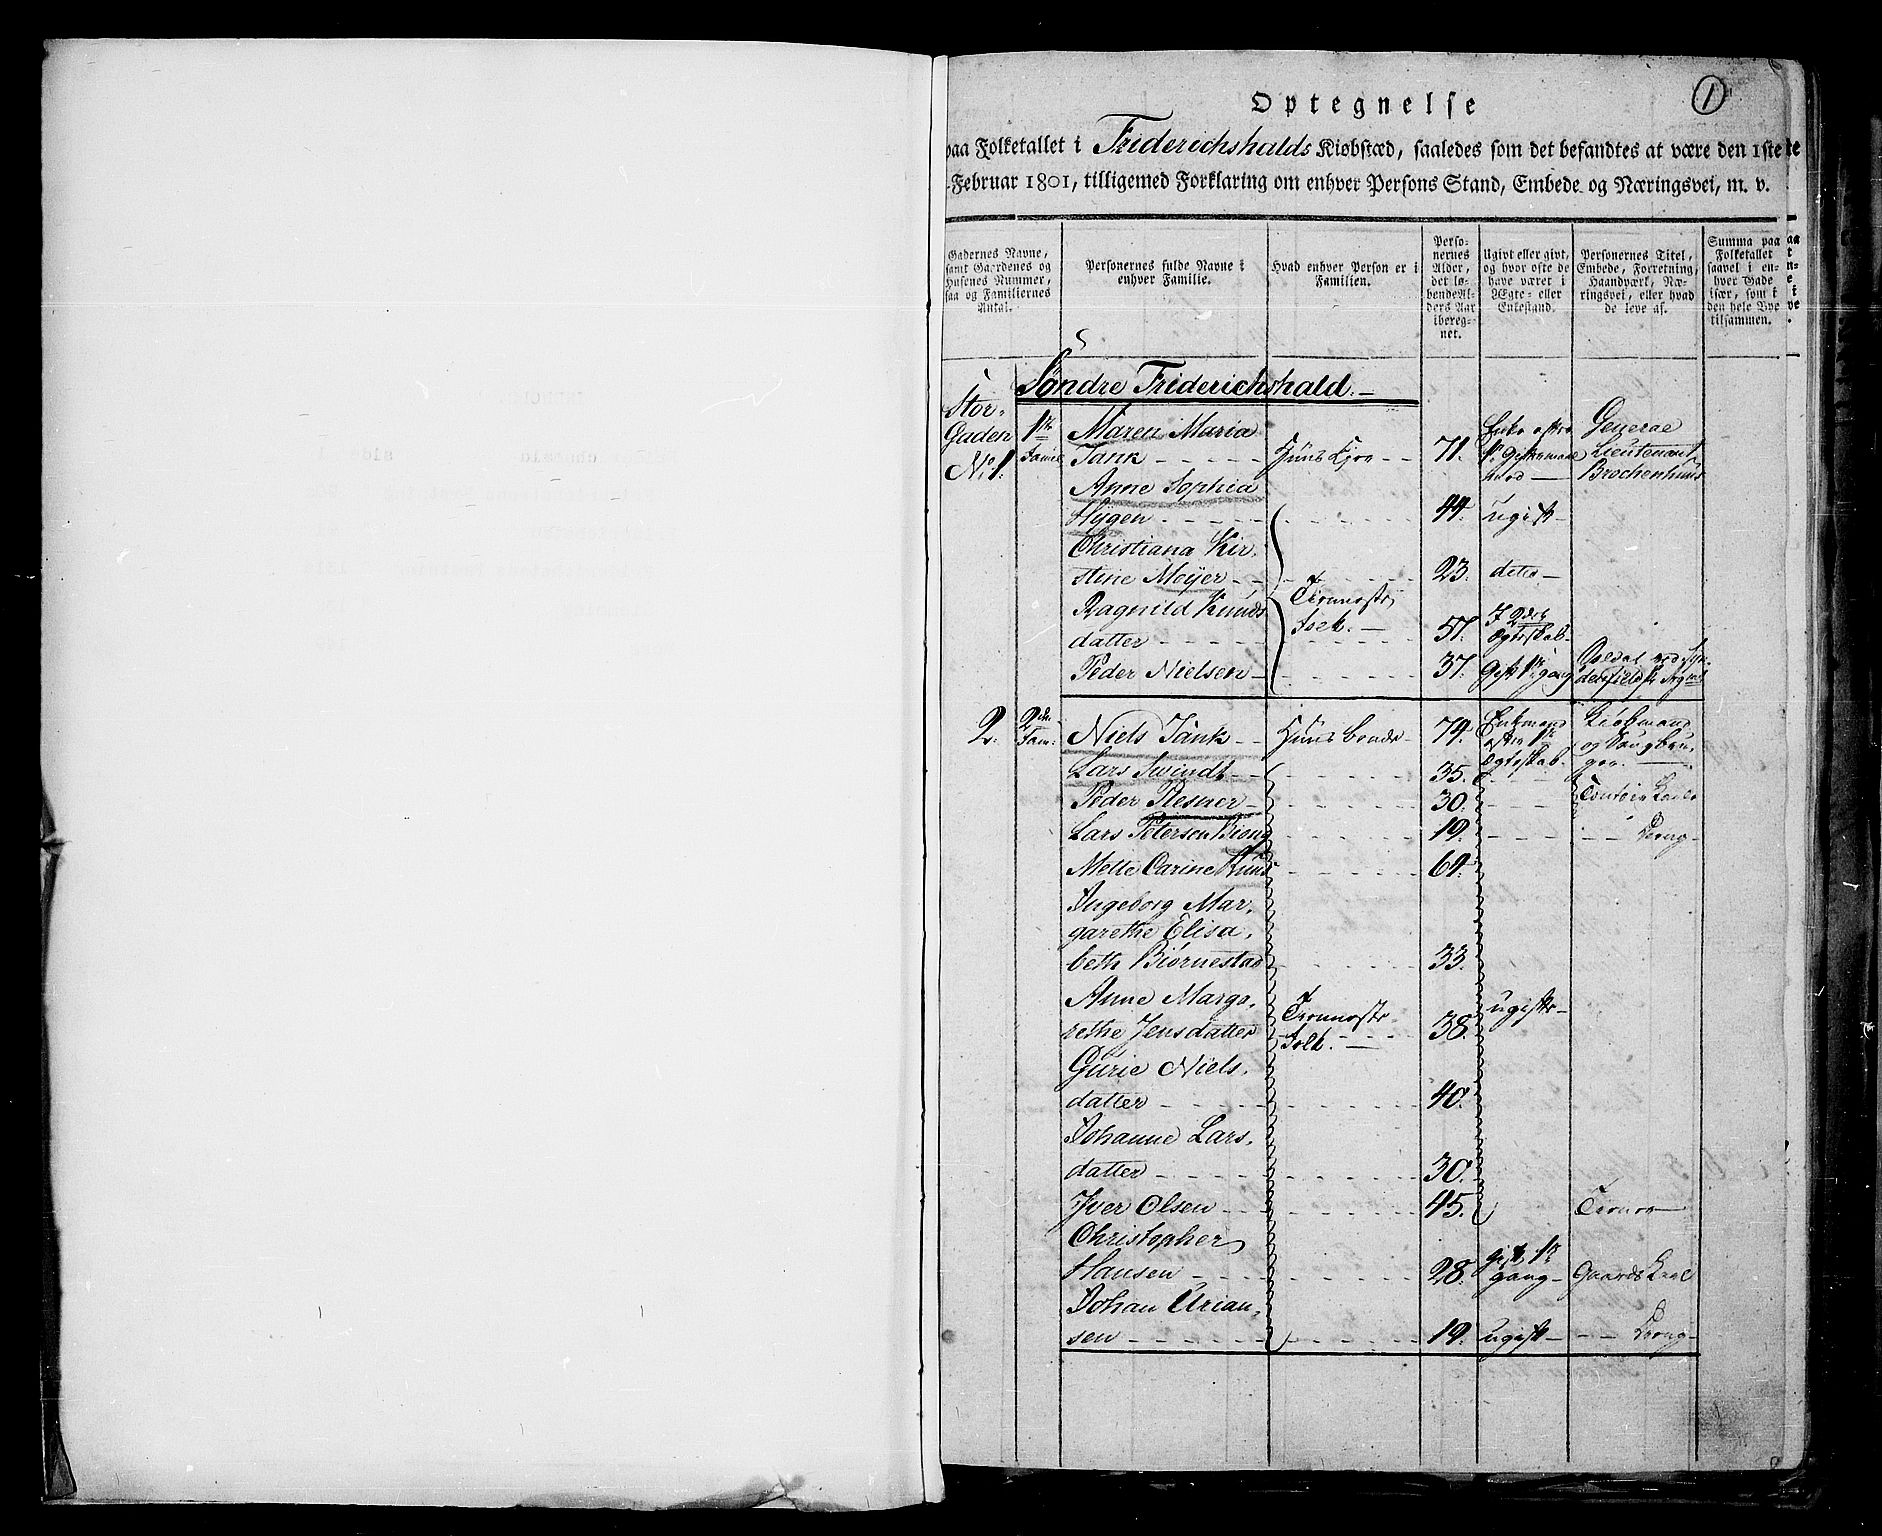 1
Optegnelse
paa Folketallet i Friderichshalds Kiøbstæd, saaledes som det befandtes at være den 1ste
Februar 1801, tilligemed Forklaring om enhver Persons Stand, Embede og Næringsvei, m. v.
Gadernes Navne,
samt Gaardenes og
Husenes Nummer,
saa og Familiernes
Antal.
Personernes fulde Navne i
enhver Familie.
Hvad enhver Person er i
Familien.
Perso-
nernes
Alder,
det lø-
bende Al-
ders Aar
ibereg-
net.
Ugivt eller givt,
og hvor ofte de
have været i
Ægte- eller
Enkestand.
Personernes Titel,
Embede, Forretning,
Haandværk, Næ-
ringsvei, eller hvad
de leve af.
Summa paa
Folketallet
saavel i en-
hver Gade
især, som i
den hele Bye
tilsammen.
Søndre Friderichshald.
Stor-
Gaden
No 1.
1te
Famil
Maren Maria
Tank - - - - Huus Fru 71. Enke efter Generae
Lieutenant
Brochenhuus
Anne Sophia
Hÿgen - - - - 44. ugift
Christiana Kir-
stine Meÿer - - 23. dito -
Ragnild Knuds
datter - - - 57. I 2det
Ægteskab-
Tieneste
Folk. -
Peder Nielsen - 37. Gift 1te gang Soldat ved Syn-
denfieldske Regmt
2. 2den
Fam:
Niels Tank - - Huus bonde - 74. Enkemand
efter 1te
Ægteskab. Kiøbmand
og Saugbru-
ger. -
Lars Swindt - - 35.
Peder Resner - 30. Contoir Karle
Lars Petersen Biong 19. - - Dreng -
Mette Carine Kuus 64.
Ingeborg Mar-
garethe Elisa-
beth Biørnestad 33.
Anne Marga-
rethe Jensdatter 38. ugifte -
Tieneste
Folk. -
Gurie Niels-
datter - - - 40.
Johanne Lars-
datter - - - 30.
Iver Olsen - - 45. Tiener
Christopher
Hansen - - - 28. gift 1te
gang - Gaards Karl
Johan Urian-
sen - - - - 19. ugift - - - Dreng -